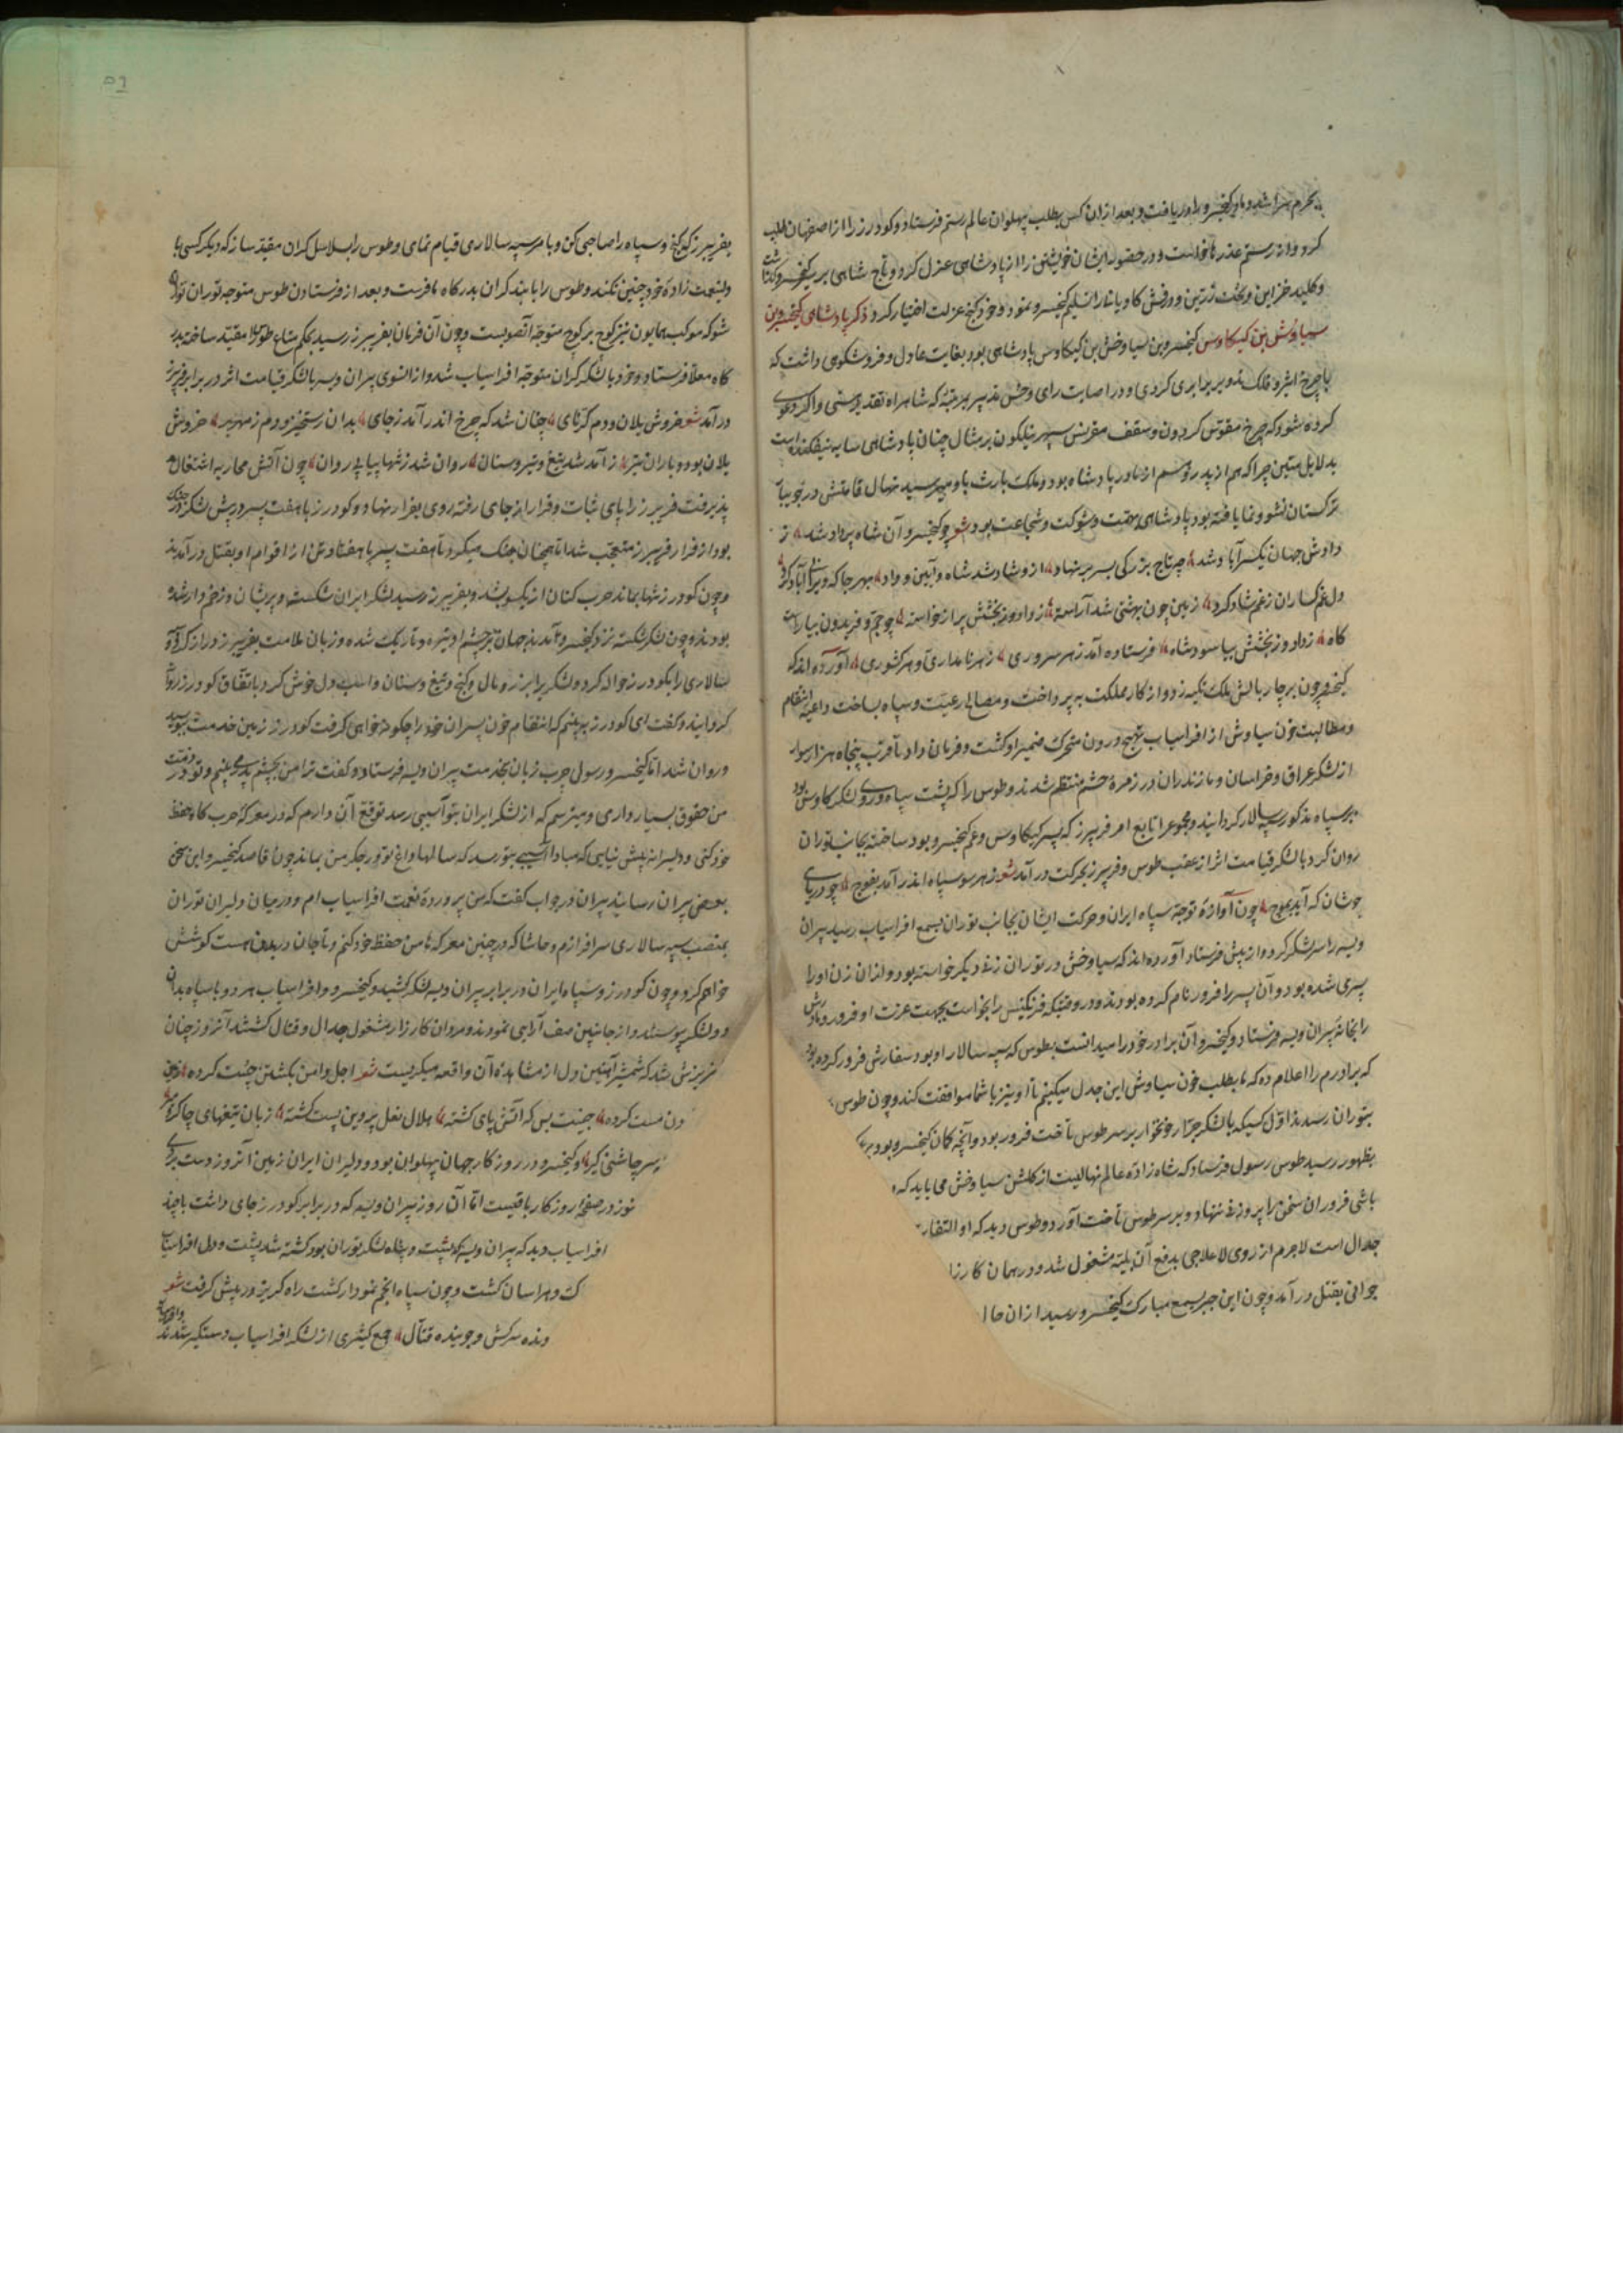 بحرم سرا شد و با کیخسرو را دریافت و بعد از ان کس بطلب پهلوان عالم رستم فرستاد و کودرز را از اصفهان طلب
کرد و از رستم عذرها خواست و در حضور ایشان خویشتن را از پادشاهی عزل کرد و تاج شاهی بر سر کیخسرو
و کلید خزاین و تخت زرین و درفش کاویانی را تسلیم کیخسرو نمود و خود کنج عزلت اختیار کرد ذکر پادشاهی کیخسرو بن
سیاوش بن کیکاوس کیخسرو بن سیاوخش بن کیکاوس پادشاهی بود بغایت عادل و فر و شکوهی داشت که
با چرخ اثیر و فلک تدویر برابری کردی و در اصابت رای و حسن تدبیر بمرتبهٔ که شاهراه تقدیر و اکر دعوی
کرده شود که چرخ مقوس کردون و سقف مقرنس سپهر نیلکون بر مثال چنان پادشاهی سایه نیفکنده است
بدلایل متین چرا که هم از پدر و هم از مادر پادشاه بود و ملک بارث باو میرسید نهال قامتش در جویبار
ترکستان نشو و نما یافته بود پادشاهی با همت و شوکت و شجاعت بود شعر چو کیخسرو آن شاه پرداد شد ز
دادش جهان یکسر آباد شد چو تاج بزرکی بسر بر نهاد ازو شاد شد شاه و آیین و داد بهر جا که ویرانی آباد کرد
دل غمکساران ز غم شاد کرد زمین چون بهشتی شد آراسته ز داد و ز بخشش پر از خواسته چو جم و فریدون بیاراست
کاه ز داد و ز بخشش بیاسود شاه فرستاده آمد ز هر سروری ز هر نامداری و هر کشوری آورده اند که
کیخسرو چون بر چار بالش ملک تکیه زد و از کار مملکت بپرداخت و مصالح رعیت و سپاه بساخت داعیهٔ انتقام
و مطالبت خون سیاوش از افراسیاب مهیج درون متحرک ضمیر او کشت و فرمان داد تا قرب پنجاه هزار سوار
از لشکر عراق و خراسان و مازندران در زمرهٔ حشم منتظم شدند و طوس را که پشت سپاه و روی لشکر کاوس بود
بر سپاه مذکور سپه سالار کردانید و مجموع را تابع امر فریبرز که پسر کیکاوس و عم کیخسرو بود ساخته بجانب توران
روان کرد با لشکر قیامت اثر از عقب طوس و فریبرز بحرکت در آمد شعر ز هر سو سپاه اندر آمد بفوج چو دریای
جوشان که آید بموج چون آوازهٔ توجه سپاه ایران و حرکت ایشان بجانب توران بسمع افراسیاب رسید پیران
ویسه را سر لشکر کرد و از پیش فرستاد آورده اند که سیاوخش در توران زنی دیکر خواسته بود و از ان زن او را
پسری شده بود و آن پسر را فرود نام کرده بودند و در وقتیکه فرنکیس را بخواست بجهت عزت او فرود و مادرش
را بخانه پیران ویسه فرستاد و کیخسرو آن برادر خود را میدانست بطوس که سپه سالار او بود سفارش فرود کرده بود
که برادرم را اعلام ده که ما بطلب خون سیاوش این جدل میکنیم تا او نیز با شما موافقت کند و چون طوس
بتوران رسید اول کسیکه با لشکر جرار خونخوار بر سر طوس تاخت فرود بود و آنچه کمان کیخسرو بود
بظهور رسید طوس رسول فرستاد که شاه زادهٔ عالم نهالیست از کلشن سیاوخش می باید که
باشی فرود ان سخن را پر وزنی ننهاد و بر سر طوس تاخت آورد و طوس دید که او
جدال است لاجرم از روی لاعلاجی بدفع آن بلیه مشغول شد و در همان
جوانی بقتل در آمد و چون این خبر بسمع مبارک کیخسرو رسید از ان
بفریبرز که و سپاه را صاحبی کن و بامر سپه سالاری قیام نمای و طوس را بسلاسل کران مقید ساز که دیکر کسی با
ولینعمت زادهٔ خود چنین نکند و طوس را با بند کران بدرکاه ما فرست و بعد از فرستادن طوس متوجه توران
شو که موکب همایون نیز کوچ بر کوچ متوجه آنصوبست و چون آن فرمان بفریبرز رسید بحکم شاه طوس را مقید ساخته بدر
کاه معلا فرستاد و خود با لشکر کران متوجه افراسیاب شد و از انسوی پیران ویسه با لشکر قیامت اثر در برابر فریبرز
در آمد شعر خروش یلان و دم کرنای چنان شد که چرخ اندر آمد ز جای بدان رستخیز و دم زمهریر خروش
یلان بود و باران تیر ز آمد شد تیغ و تیر و سنان روان شد ز تنها پیاپی روان چون آتش محاربه اشتعال
پذیرفت فریبرز را پای ثبات و قرار از جای رفته روی بفرار نهاد و کودرز با هفت پسر در پیش لشکر در جنک
بود از فرار فریبرز متعجب شد اما همچنان جنک میکرد تا هفت پسر با هفتاد تن از اقوام او بقتل در آمدند
و چون کودرز تنها بماند حرب کنان از یکسو شد و بفریبرز رسید لشکر ایران شکسته و پریشان و زخم دار شده
بودند و چون لشکر شکسته نزد کیخسرو آمدند جهان بر چشم او تیره و تاریک شده و زبان ملامت بفریبرز دراز کرد و
سالاری را بکودرز حواله کرد و لشکر را بزر و مال و کنج و تیغ و سنان و اسب دل خوش کرد باتفاق کودرز روان
کردانید و کفت ای کودرز ببینم که انتقام خون پسران خود را چکونه خواهی کرفت کودرز زمین خدمت ببوسید
و روان شد اما کیخسرو رسولی چرب زبان بخدمت پیران ویسه فرستاد و کفت ترا من بچشم پدر می بینم و تو در ذمت
من حقوق بسیار داری و میترسم که از لشکر ایران بتو آسیبی رسد توقع آن دارم که در معرکهٔ حرب کاه حفظ
خود کنی و دلیرانه پیش نیایی که مبادا آسیبی بتو رسد که سالها داغ تو در جکر من بماند چون قاصد کیخسرو این سخن
بعرض پیران رسانید پیران در جواب کفت که من پروردهٔ نعمت افراسیاب ام و در میان دلیران توران
بمنصب سپه سالاری سرافرازم و حاشا که در چنین معرکه ها من حفظ خود کنم و تا جان در بدن هست کوشش
خواهم کرد و چون کودرز و سپاه ایران در برابر پیران ویسه لشکر کشید و کیخسرو و افراسیاب هر دو با سپاه بدان
دو لشکر پیوستند و از جانبین صف آرایی نمودند و مردان کارزار مشغول جدال و قتال کشتند آنروز چنان
خونریزش شد که شمشیر آهنین دل از مشاهدهٔ آن واقعه میکریست شعر اجل دامن بکشتن چست کرده
مست کرده جنیبت بس که آتش پای کشته هلال نعل پروین پست کشته زبان تیغهای
سر چاشنی کیر و کیخسرو در روز کار جهان پهلوان بود و دلیران ایران زمین آنروز دست بردی
نوز در صفحهٔ روزکار باقیست اما آن روز پیران ویسه که در برابر کودرز جای داشت با چند
افراسیاب دید که پیران ویسه که پشت و پناه لشکر توران بود کشته شد پشت و دل افراسیاب
و هراسان کشت و چون سپاه انجم نمودار کشت راه کریز در پیش کرفت شعر
سرکش و جوینده قتال جمع کثیری از لشکر افراسیاب دستکیر شدند